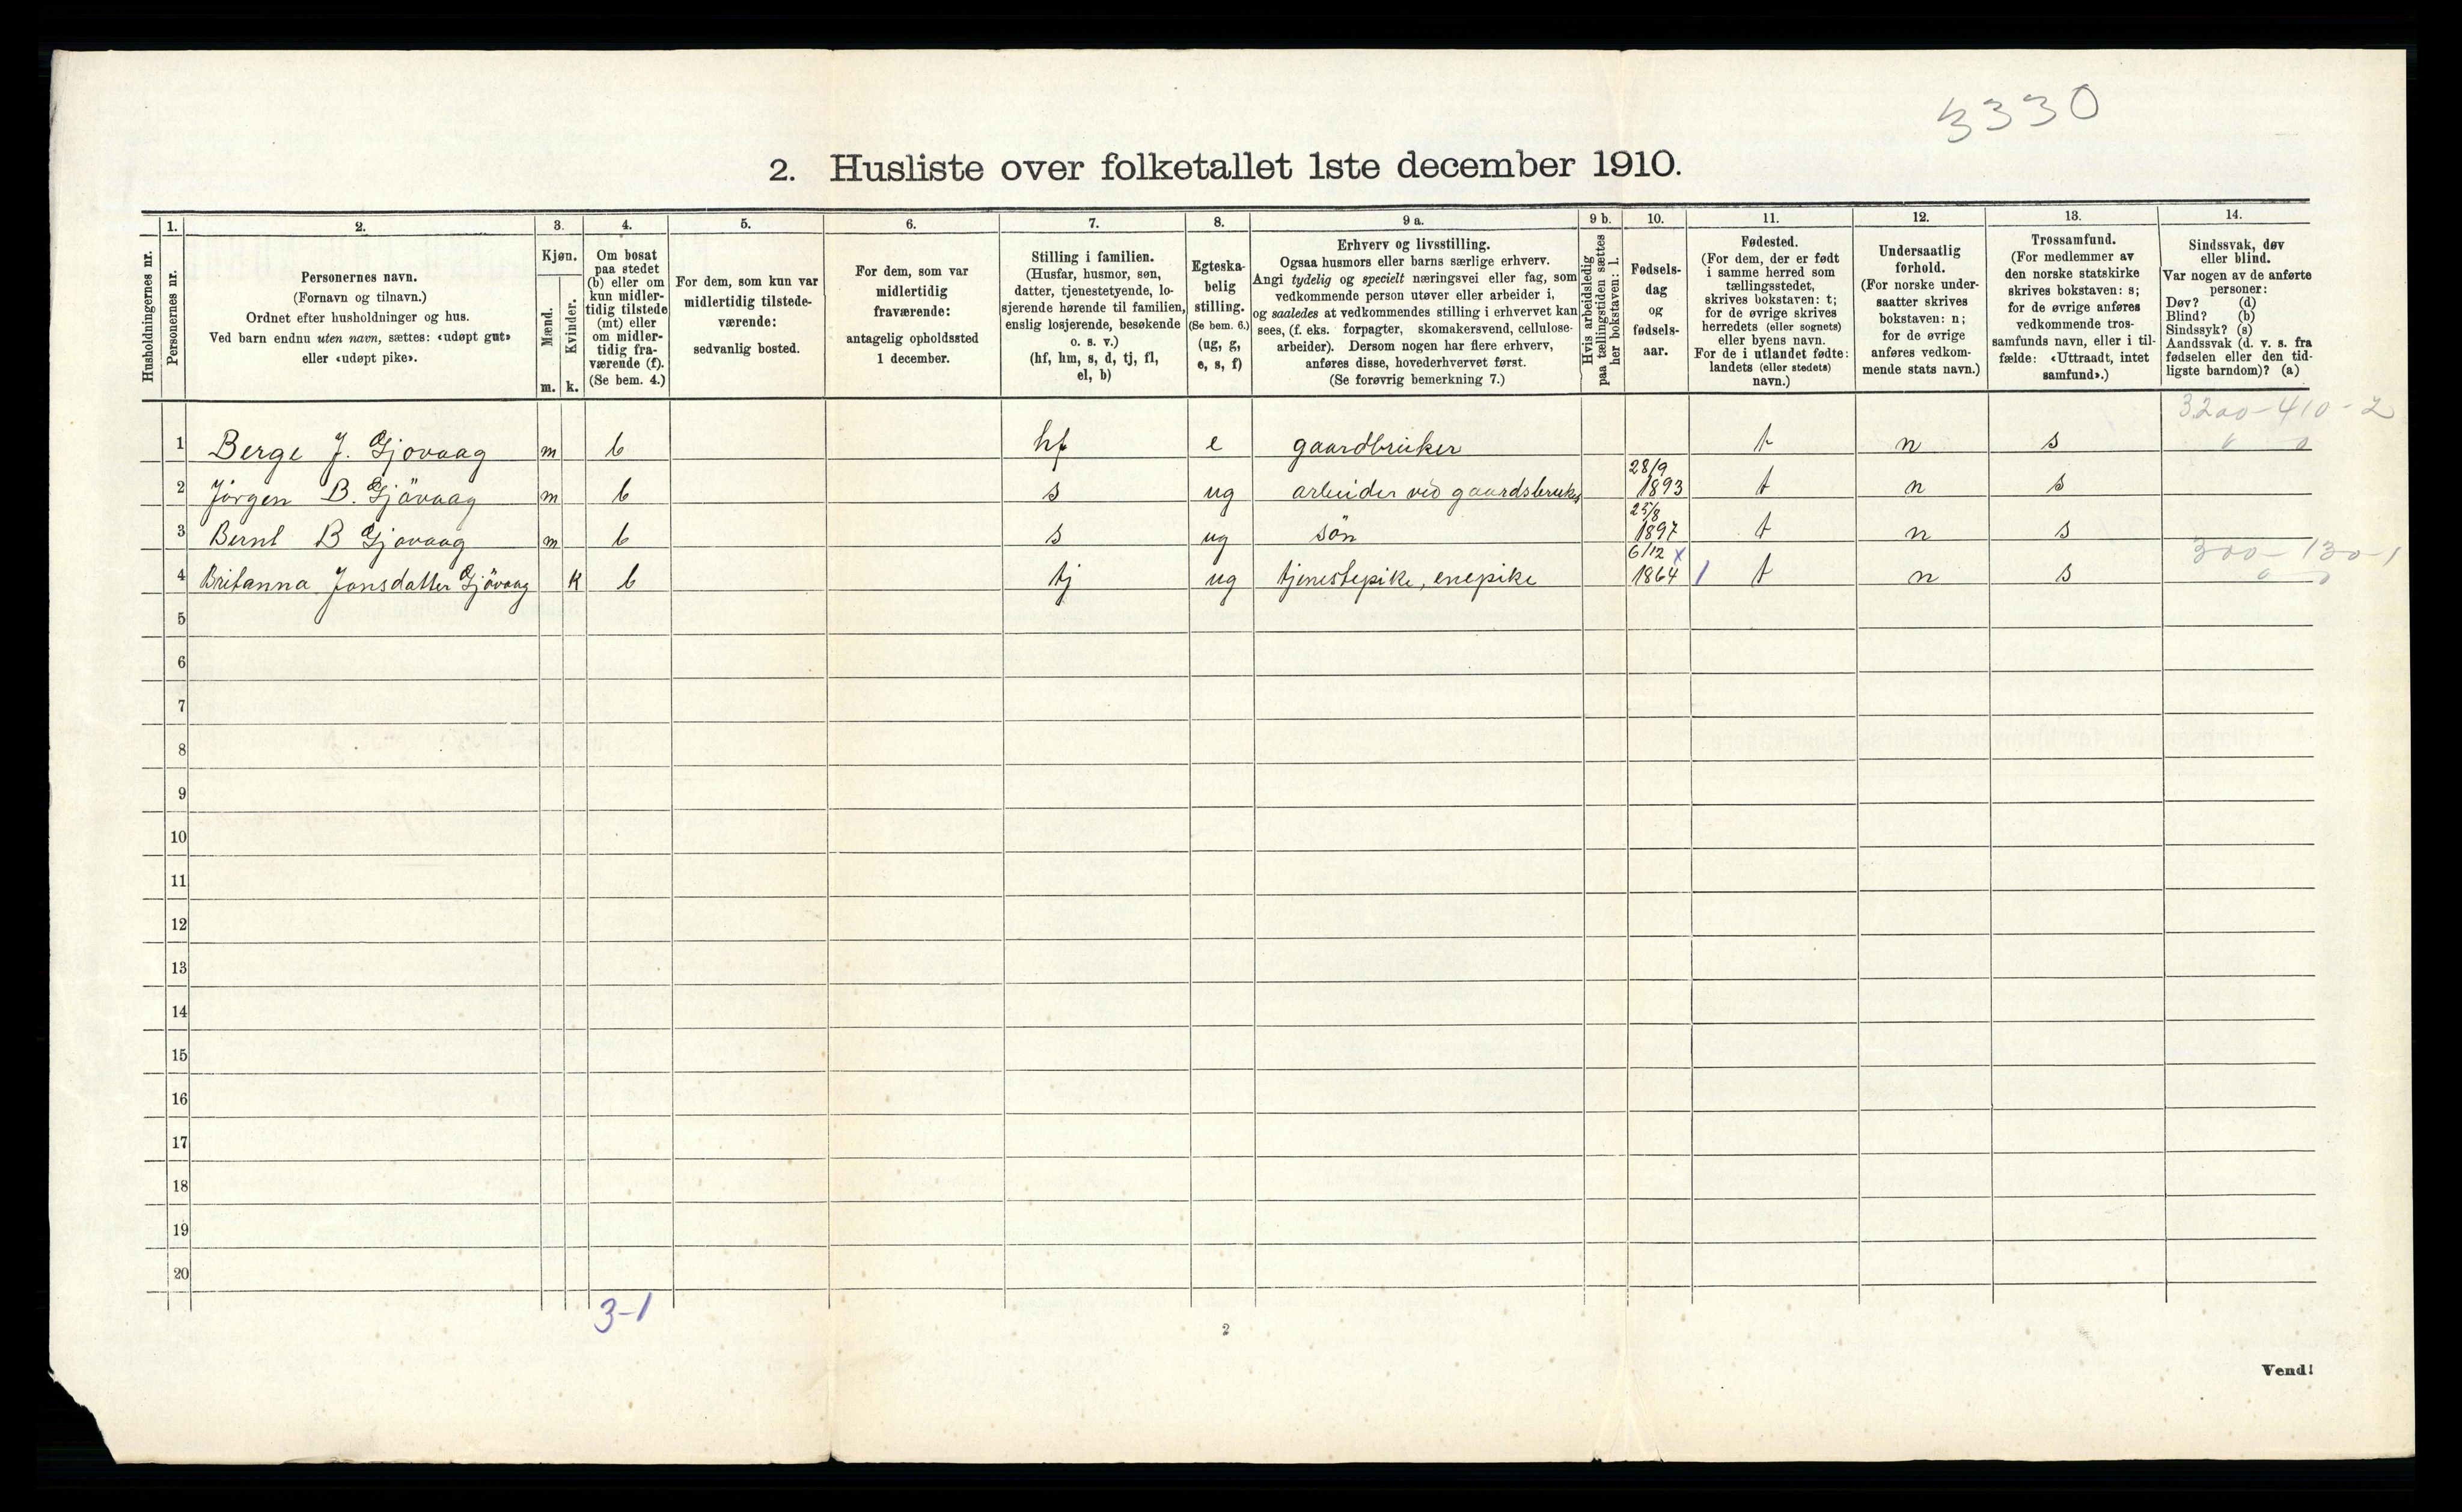 3330
2. Husliste over folketallet 1ste december 1910.
Husholdningernes nr.
1.
Personernes nr.
2.
Personernes navn.
(Fornavn og tilnavn.)
Ordnet efter husholdninger og hus.
Ved barn endnu uten navn, sættes: «udøpt gut»
eller «udøpt pike».
3.
Kjøn.
Mænd.
Kvinder.
m. k.
4.
Om bosat
paa stedet
(b) eller om
kun midler-
tidig tilstede
(mt) eller
om midler-
tidig fra-
værende (f).
(Se bem. 4.)
5.
For dem, som kun var
midlertidig tilstede-
værende:
sedvanlig bosted.
6.
For dem, som var
midlertidig
fraværende:
antagelig opholdssted
1 december.
7.
Stilling i familien.
(Husfar, husmor, søn,
datter, tjenestetyende, lo-
sjerende hørende til familien,
enslig losjerende, besøkende
o. s. v.)
(hf, hm, s, d, tj, fl,
el, b)
8.
Egteska-
belig
stilling.
(Se bem. 6.)
(ug, g,
e, s, f)
9 a.
Erhverv og livsstilling.
Ogsaa husmors eller barns særlige erhverv.
Angi tydelig og specielt næringsvei eller fag, som
vedkommende person utøver eller arbeider i,
og saaledes at vedkommendes stilling i erhvervet kan
sees, (f. eks. forpagter, skomakersvend, cellulose-
arbeider). Dersom nogen har flere erhverv,
anføres disse, hovederhvervet først.
(Se forøvrig bemerkning 7.)
9 b.
Hvis arbeidsledig
paa tællingstiden sættes
her bokstaven: l.
10.
Fødsels-
dag
og
fødsels-
aar.
11.
Fødested.
(For dem, der er født
i samme herred som
tællingsstedet,
skrives bokstaven: t;
for de øvrige skrives
herredets (eller sognets)
eller byens navn.
For de i utlandet fødte:
landets (eller stedets)
navn.)
12.
Undersaatlig
forhold.
(For norske under-
saatter skrives
bokstaven: n;
for de øvrige
anføres vedkom-
mende stats navn.)
13.
Trossamfund.
(For medlemmer av
den norske statskirke
skrives bokstaven: s;
for de øvrige anføres
vedkommende tros-
samfunds navn, eller i til-
fælde: «Uttraadt, intet
samfund».)
14.
Sindssvak, døv
eller blind.
Var nogen av de anførte
personer:
Døv? (d)
Blind? (b)
Sindssyk? (s)
Aandssvak (d. v. s. fra
fødselen eller den tid-
ligste barndom)? (a)
3200-410-2
1 Berge J. Gjovaag m b hf e gaardbruker t n s 0 0
2 Jörgen B. Gjövaag m b s ug arbeider ved gaardsbruks 28/9 1893 t n s
3 Bernt B Gjovaag m b s ug sön 25/8 1897 t n s
300-130-1
4 Britanna Jonsdatter Gjövaag k b tj ug tjenestepike, enepike 6/12 x 1864 1 t n s 0 0
5
6
7
8
9
10
11
12
13
14
15
16
17
18
19
20
3-1
2
Vend!